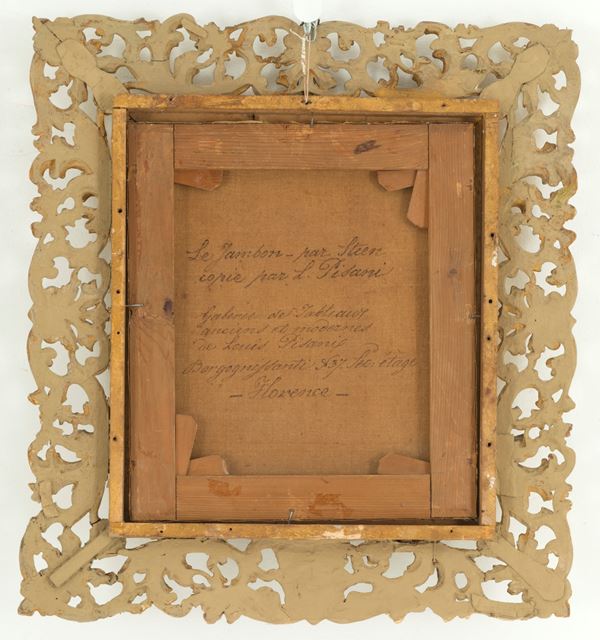 Le Jambon - par Steen
copie par L. Pisani
Galerie de Tableaux
anciens et modernes
de Louis Pisani
Borgognissanti 37
- Florence -